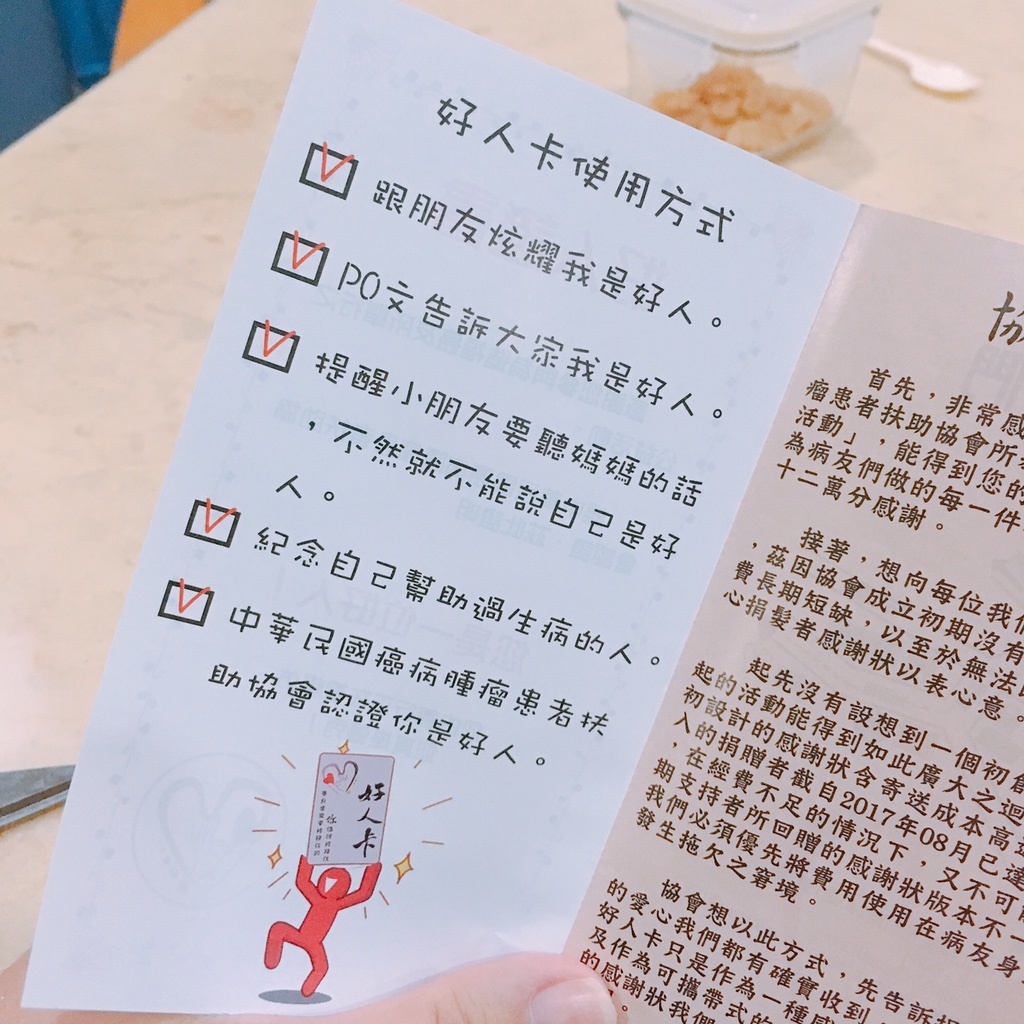 好人卡使用方式
跟朋友炫耀我是好人。
PO文告訴大家我是好人。
提醒小朋友要聽媽媽的話
，不然就不能說自己是好
人。
紀念自己幫助過生病的人。
中華民國癌病腫瘤患者扶
助協會認證你是好人。
好人卡
協
首先，非常感
瘤患者扶助協會所
活動」，能得到您的
為病友們做的每一件
十二萬分感謝。
接著，想向每位我們
，茲因協會成立初期沒有
費長期短缺，以至於無法
心捐髮者感謝狀以表心意。
起先沒有設想到一個初創
起的活動能得到如此廣大之迴
初設計的感謝狀含寄送成本高
入的捐贈者截自2017年08月已達
，在經費不足的情況下，又不可
期支持者所回贈的感謝狀版本不一
我們必須優先將費用使用在病友身
發生拖欠之窘境。
協會想以此方式，先告訴
的愛心我們都有確實收到
好人卡只是作為一種感
及作為可攜帶式的
的感謝狀我們